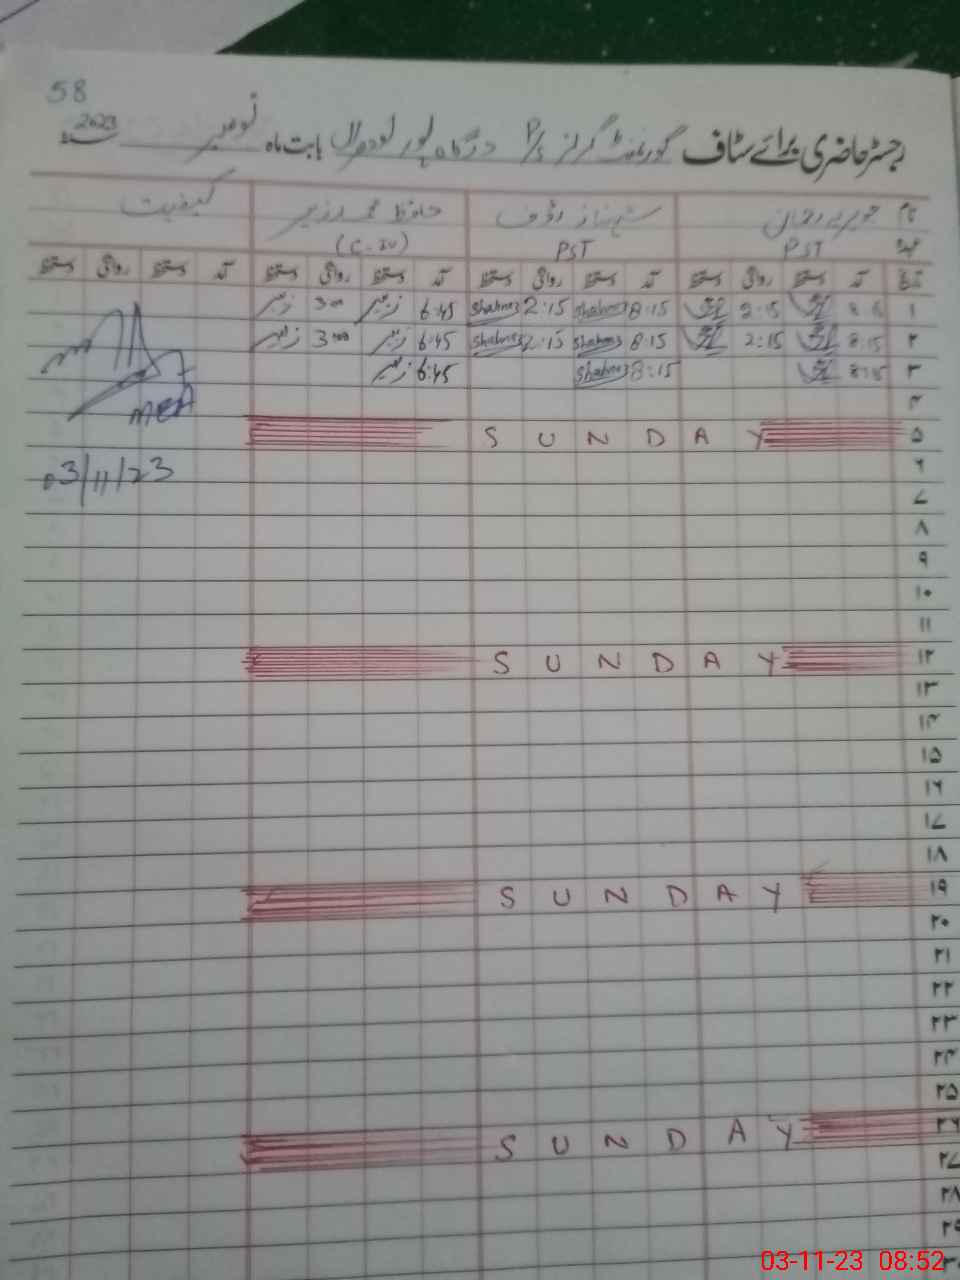 58
رجسٹر حاضری برائے سٹاف گورنمنٹ گرلز P/S درگاہ پور لودھراں بابت ماہ نومبر 2023
نام شہناز رؤف حافظ محمد زبیر کیفیت
عہدہ PST PST (C-IV)
تاریخ آمد دستخط روانگی دستخط آمد دستخط روانگی دستخط آمد دستخط روانگی دستخط آمد دستخط روانگی دستخط
۱ 2:15 8:15 Shahnaz 2:15 Shahnaz 6:45 زبیر 300 زبیر
۲ 8:15 2:15 8:15 Shahnaz 2:15 Shahnaz 6:45 زبیر 300 زبیر
۳ 8:15 8:15 Shahnaz 6:45 زبیر
۴
MEA
۵ SUNDAY
03/11/23
۶
۷
۸
۹
۱۰
۱۱
۱۲ SUNDAY
۱۳
۱۴
۱۵
۱۶
۱۷
۱۸
۱۹ SUNDAY
۲۰
۲۱
۲۲
۲۳
۲۴
۲۵
۲۶ SUNDAY
۲۷
۲۸
۲۹
۳۰
03-11-23 08:52